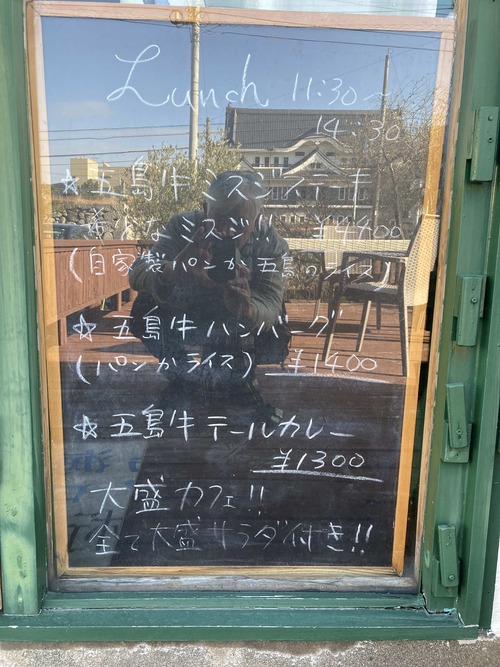 Lunch 11:30~
14:30
☆五島牛ミスジステーキ
なミスジ!! ¥4400
(自家製パンか五島のライス)
☆五島牛ハンバーグ
(パンかライス) ¥1400
☆五島牛テールカレー
¥1300
大盛カフェ!!
全て大盛サラダ付き!!